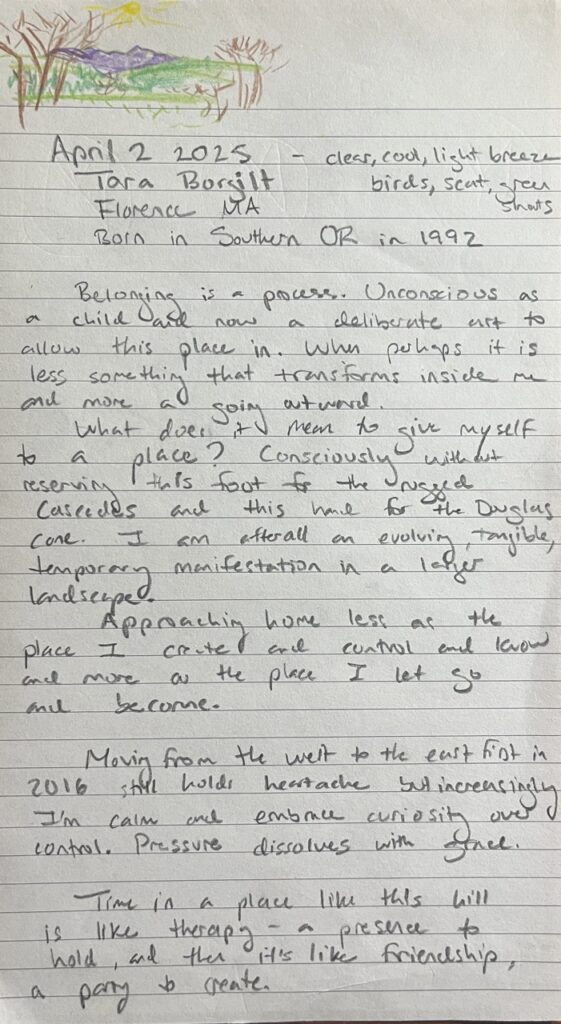 April 2 2025 - clear, cool, light breeze
Tara Borgilt birds, scat, green
Florence MA shoots
Born in Southern OR in 1992
Belonging is a process. Unconscious as
a child and now a deliberate act to
allow this place in. When perhaps it is
less something that transforms inside me
and more a going outward.
What does it mean to give myself
to a place? Consciously without
reserving this foot for the rugged
Cascades and this hand for the Douglas
cone. I am afterall an evolving, tangible,
temporary manifestation in a larger
landscape.
Approaching home less as the
place I create and control and know
and more as the place I let go
and become.
Moving from the west to the east first in
2016 still holds heartache but increasingly
I'm calm and embrace curiosity over
control. Pressure dissolves with grace.
Time in a place like this hill
is like therapy - a presence to
hold, and then it's like friendship,
a to create.